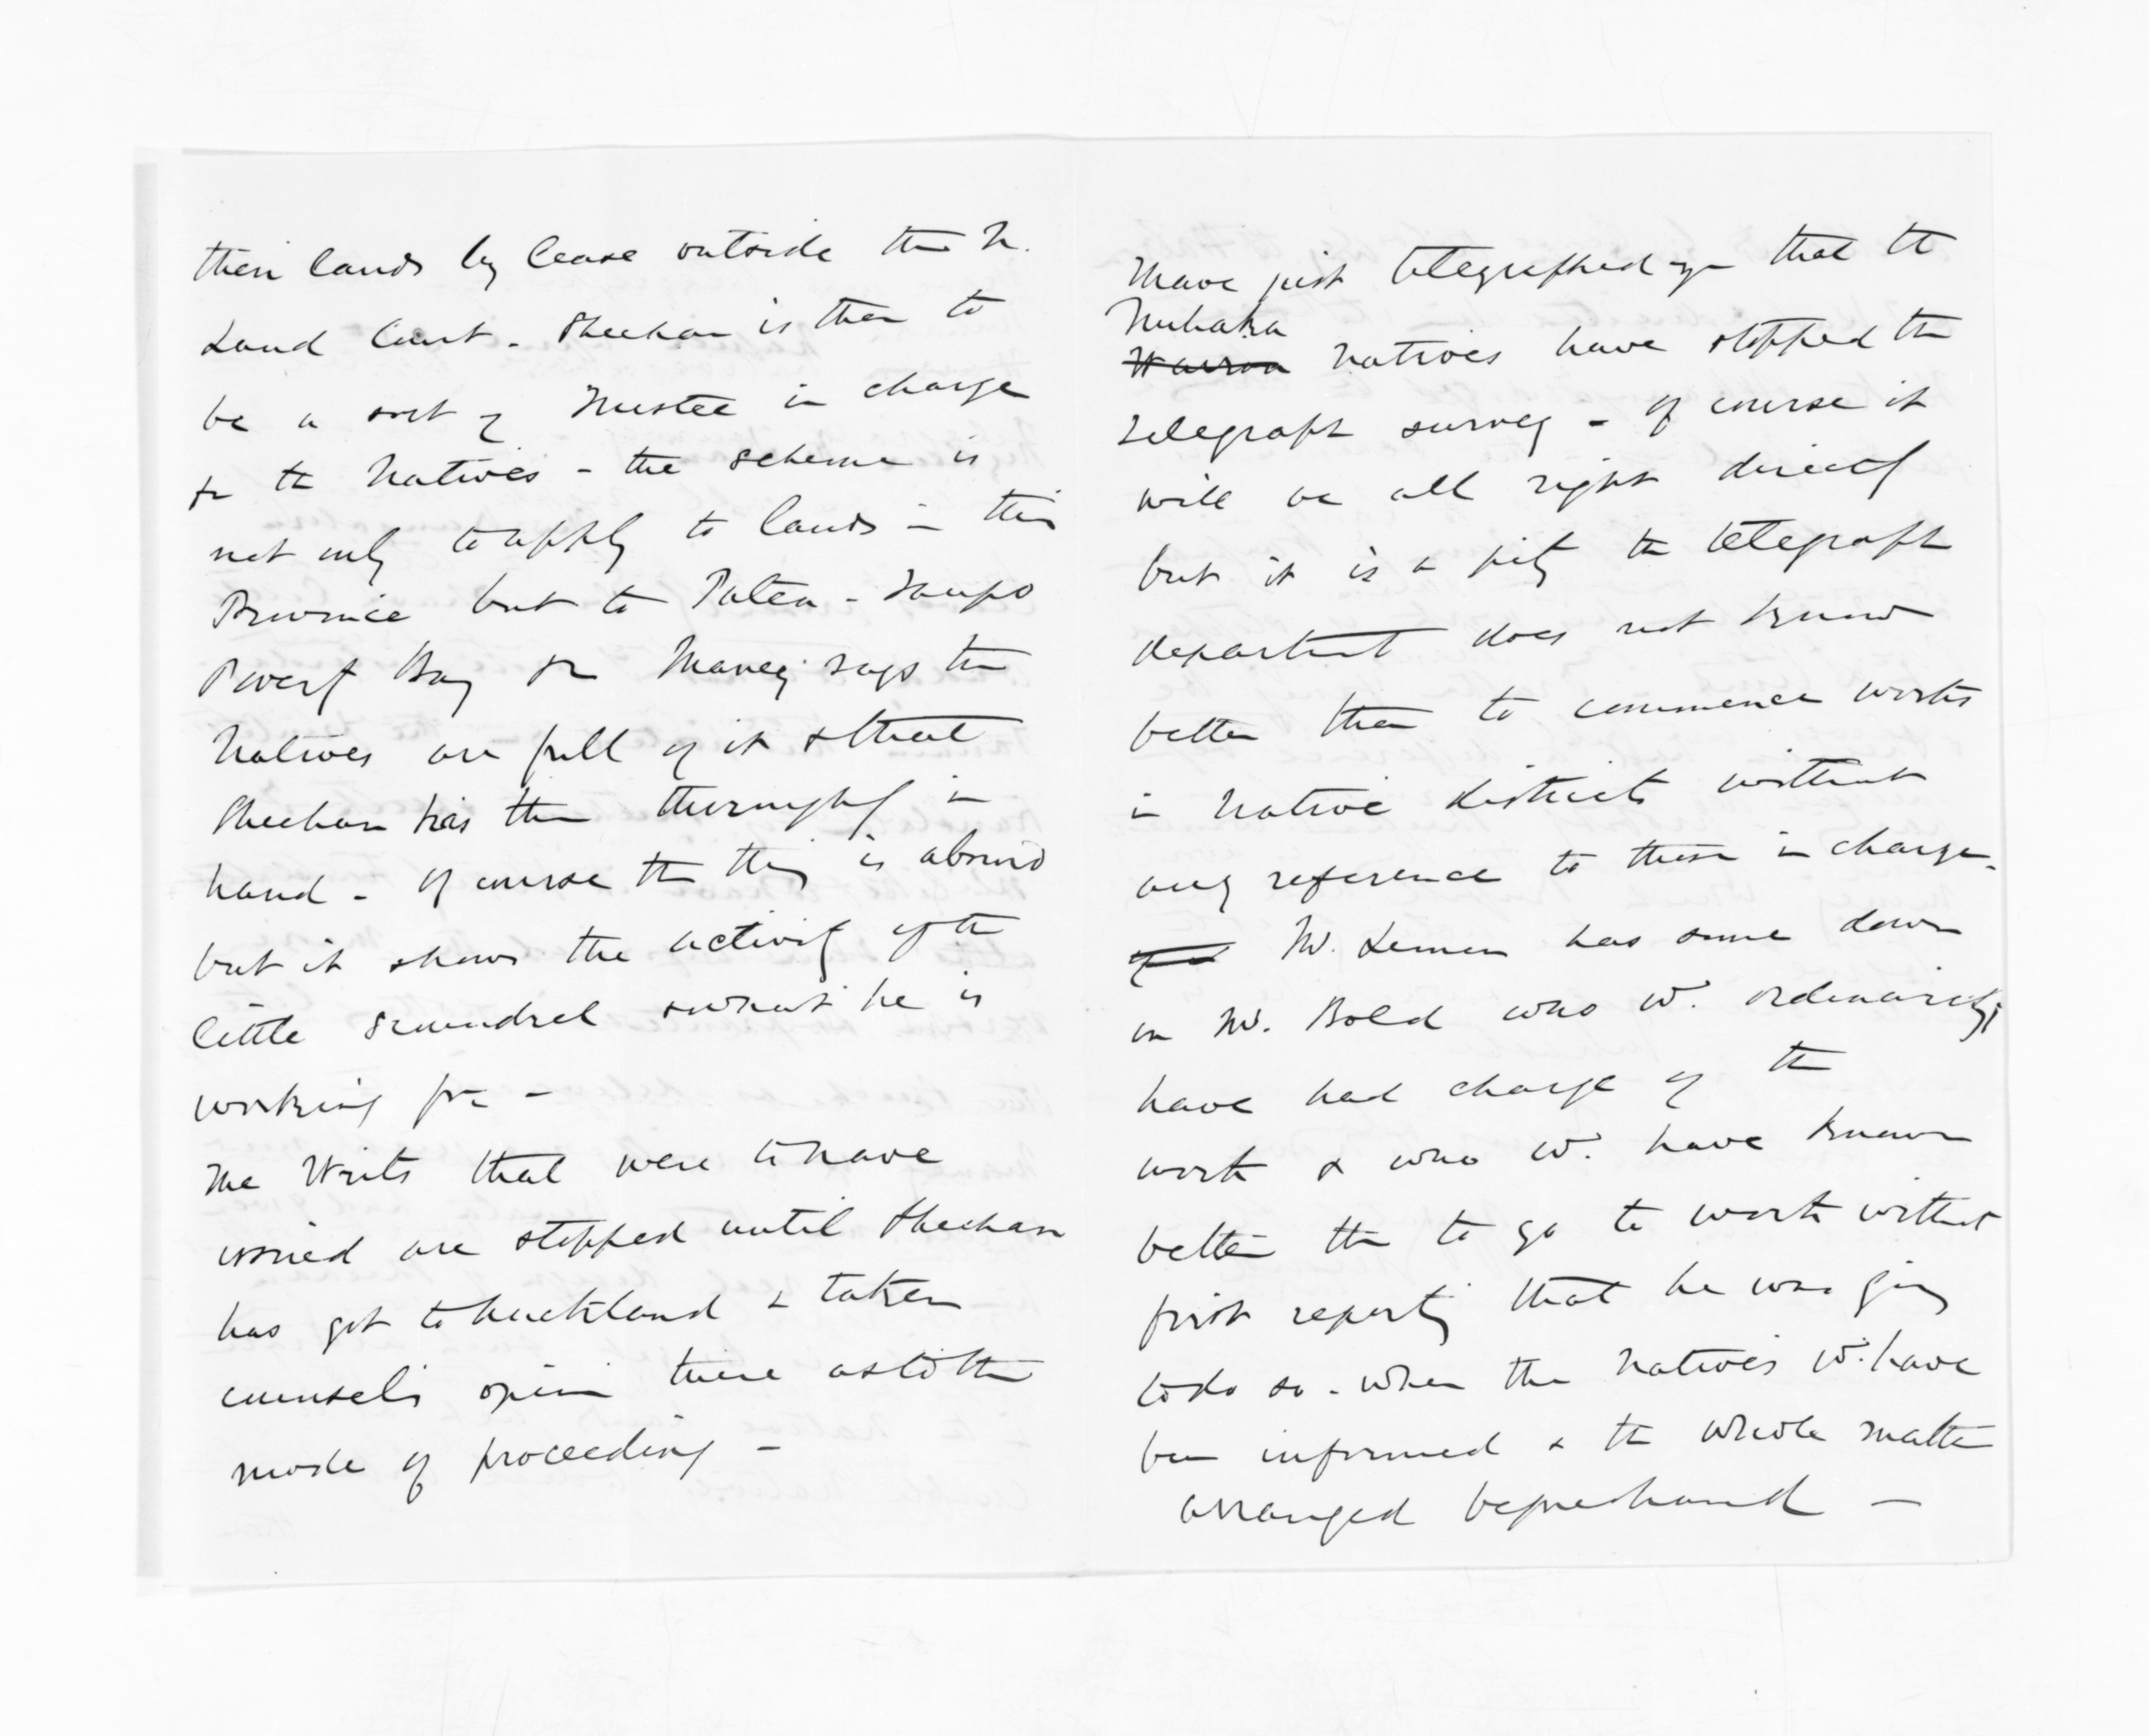 their lands by lease outside the N.
Land Court - Sheehan is then to
be a sort of Trustee in charge
for the Natives - the scheme is
not only to apply to lands in this
Province but to Patea - Taupo
Poverty Bay &c Maney says the
Natives are full of it & that
Sheehan has them thoroughly in
hand - Of course the thing is absurd
but it shows the activity of the
little scoundrel & what he is
working for -
The Writs that were to have
issued are stopped until Sheehan
has got to Auckland & taken
counsel's opinion there as to the
mode of proceeding -
I have just telegraphed you that the
Nuhaka
Wairoa natives have stopped the
telegraph survey - Of course it
will be all right directly
but it is a pity the telegraph
department does not know
better than to commence works
in native districts without
any reference to those in charge -
Mr. Lemon has come down
on Mr. Bold who wd. ordinarily
have had charge of the
work & who wd. have known
better than to go to work without
first reporting that he was going
to do so - when the natives wd. have
been informed & the whole matter
arranged beforehand -